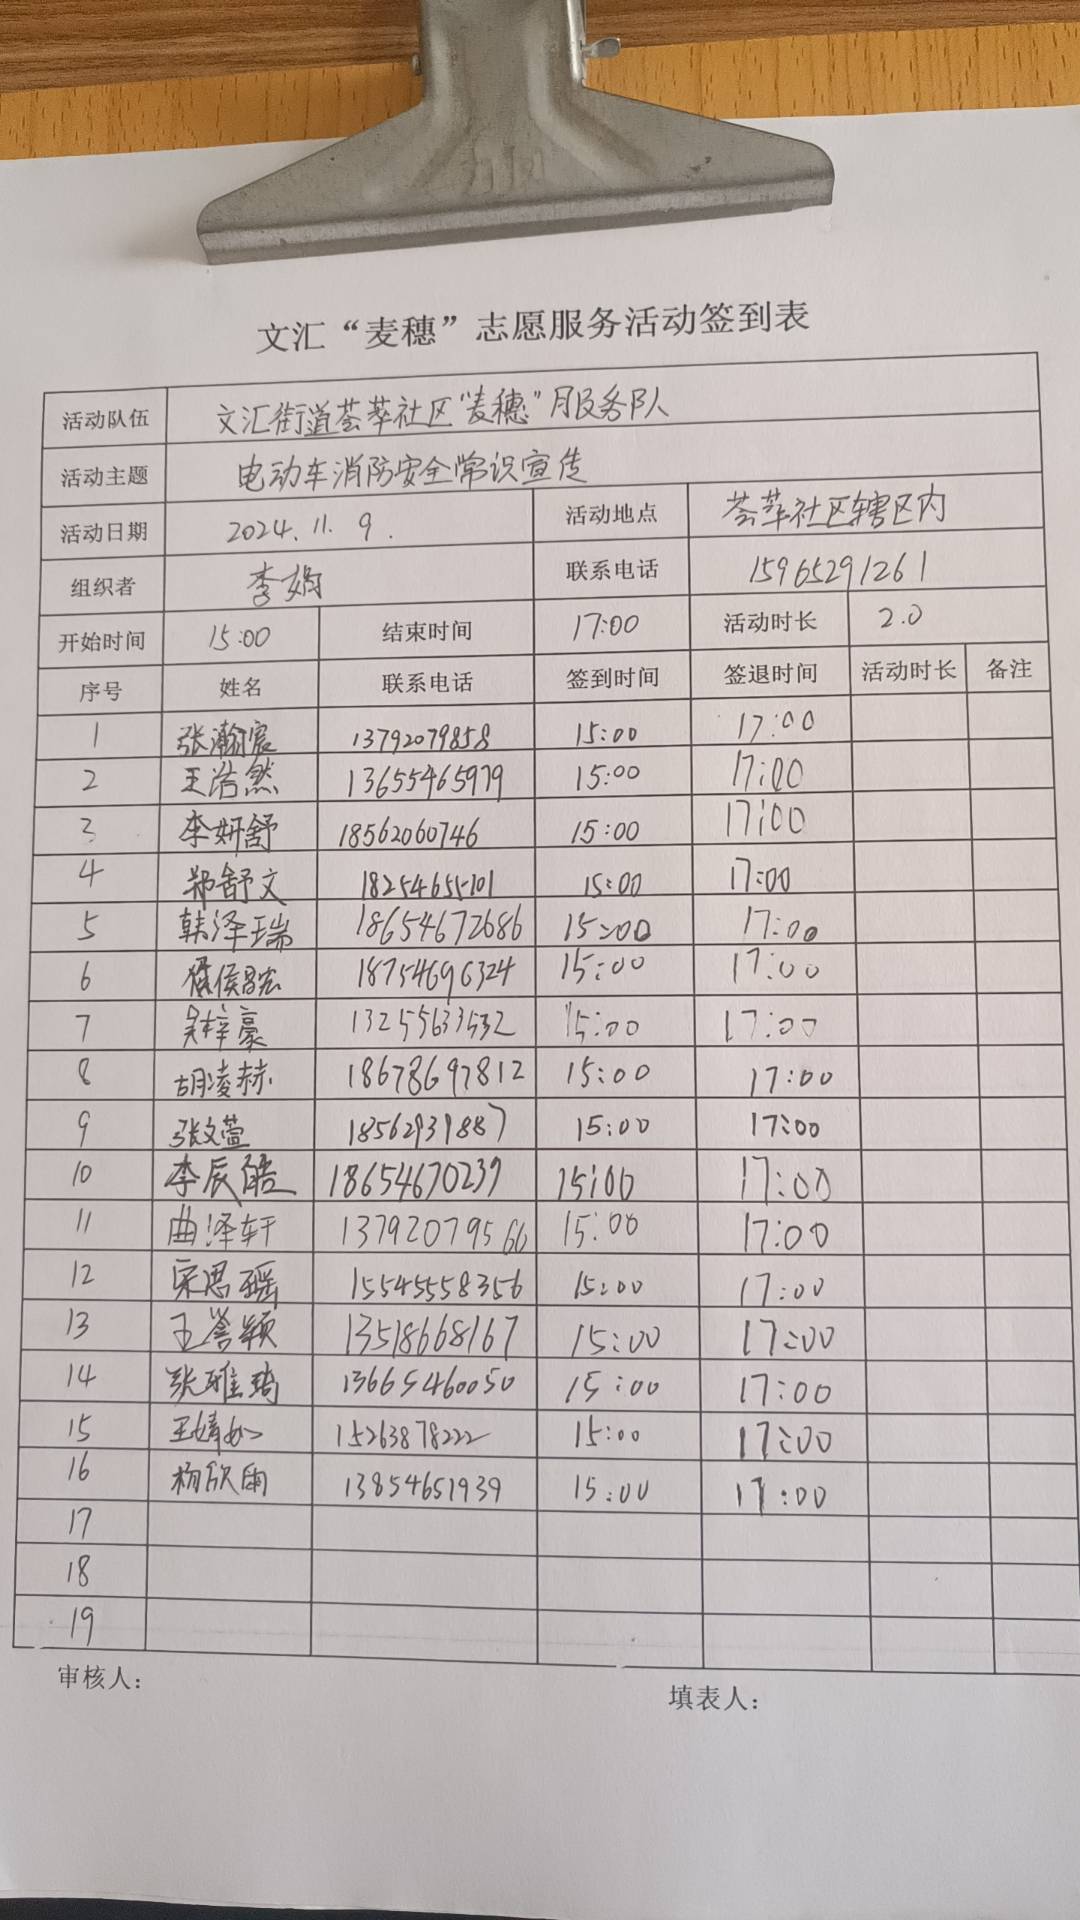 文汇“麦穗”志愿服务活动签到表
活动队伍 文汇街道荟萃社区“麦穗”服务队
活动主题 电动车消防安全常识宣传
活动日期 2024.11.9. 活动地点 荟萃社区辖区内
组织者 李娟 联系电话 15965291261
开始时间 15:00 结束时间 17:00 活动时长 2.0
序号 姓名 联系电话 签到时间 签退时间 活动时长 备注
1 张瀚宸 13792079858 15:00 17:00
2 王浩然 13655465979 15:00 17:00
3 李妍舒 18562060746 15:00 17:00
4 郑舒文 18254655101 15:00 17:00
5 韩泽瑞 18654672686 15:00 17:00
6 18754696324 15:00 17:00
7 吴梓豪 13255633532 15:00 17:00
8 胡凌赫 18678697812 15:00 17:00
9 张文萱 18562939887 15:00 17:00
10 李辰皓 18654670239 15:00 17:00
11 曲泽轩 13792079566 15:00 17:00
12 宋思瑶 15545558356 15:00 17:00
13 王誉颖 13518668167 15:00 17:00
14 张雅琦 13665460050 15:00 17:00
15 王婧如 15263878222 15:00 17:00
16 杨欣雨 13854651939 15:00 17:00
17
18
19
审核人： 填表人：